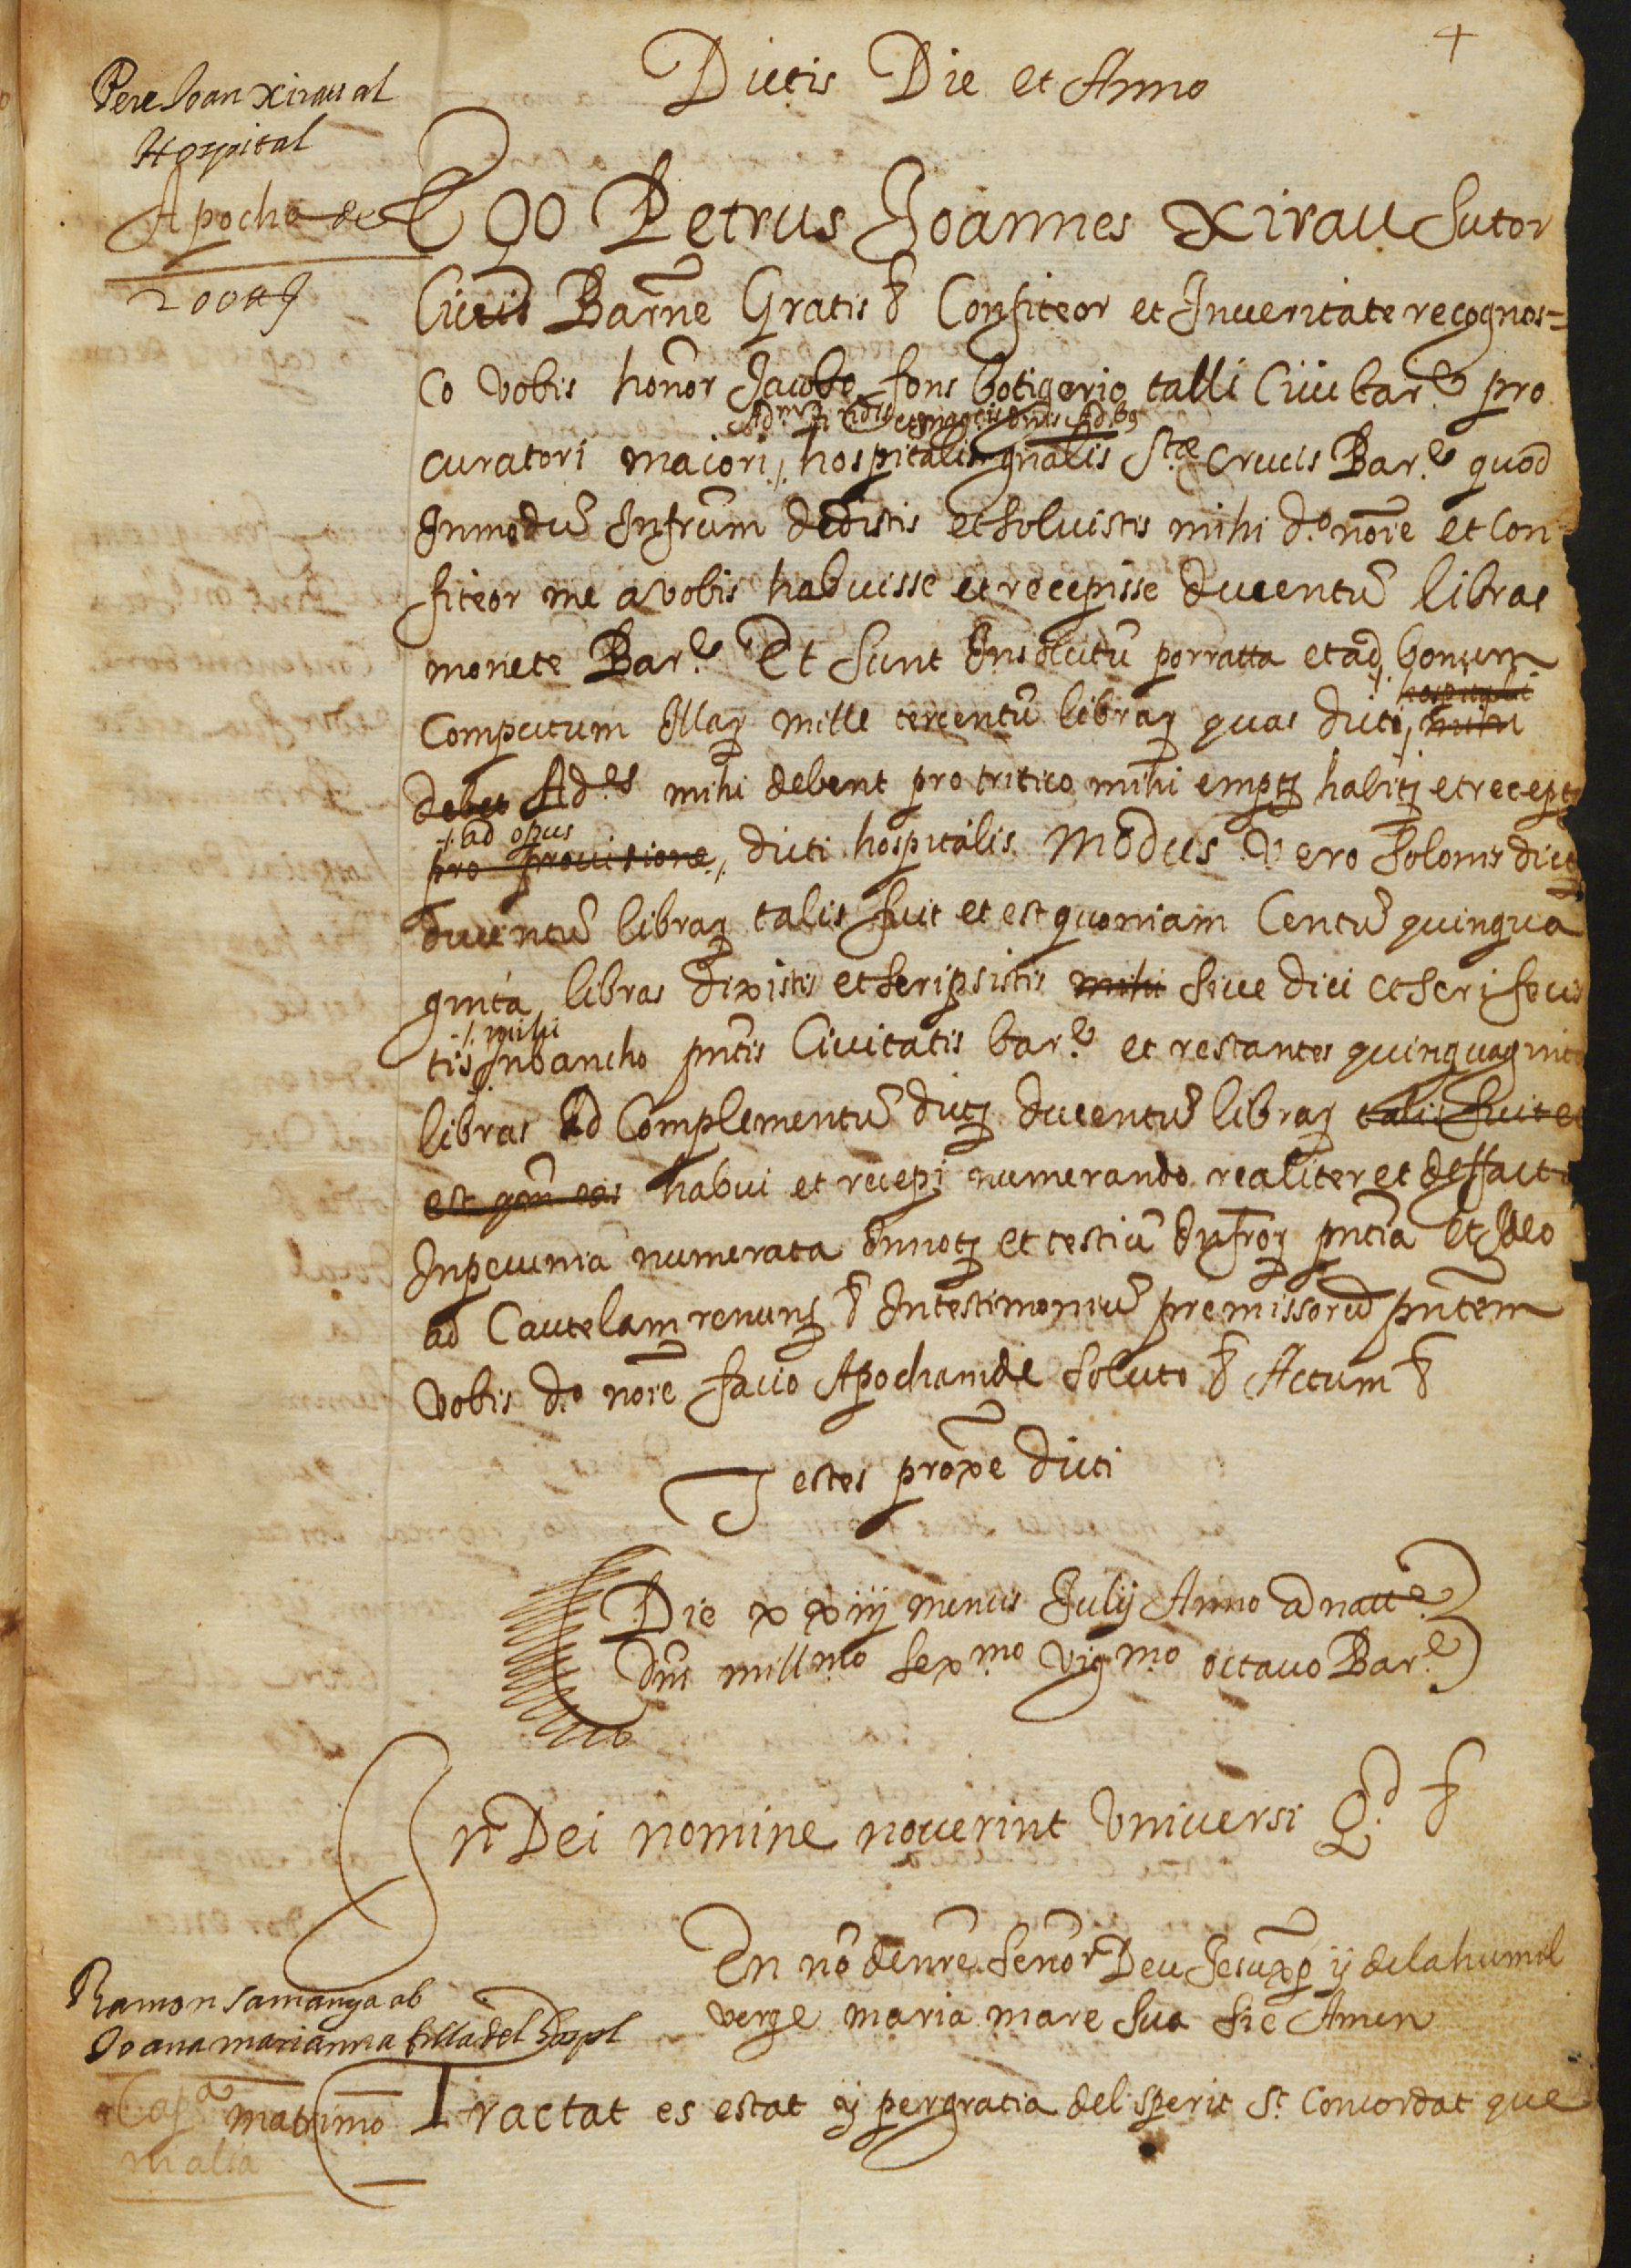 +
Dictis Die et Anno
Pere Joan Xirau al
Hospital
Apocha de
200 ₶
Ego Petrus Joannes Xirau Sutor
Civis Barñe Gratis &c Confiteor et Inveritate recognos=
co vobis honor Jacobo fons botigerio talli Civi bar.e pro
curatori maiori hospitalis gñalis Stæ Crucis Bar.e quod
Inmodũ Infrũm dedistis et Soluistis mihi d.o noie et Con=
fiteor me avobis habuisse et recepisse ducentũ libras
monete Bar.e Et Sunt Insolutũ porratta et ad bonum
hospitali
Computum Illaꝝ mille tercentũ libraꝝ quas dicto mihi
debet Ad.es mihi debent pro tritico mihi emptꝫ habitꝫ et receptꝫ
./. ad opus
pro provisione dicti hospitalis. Modus vero Solonis dictꝫ
ducentũ libraꝝ talis fuit et est quoniam Centũ quinqua
ginta libras dixistis et Scripsistis mihi Sive dici et Scri fecis
./. mihi
tis Inbancho pñtis Civitatis bar.e et restantes quinquaginta
libras ad Complementũ dictꝫ ducentũ libraꝝ talis fuit et
est qm̃ eas habui et recepi numerando realiter et deffacto
Inpecunia numerata Innotꝫ et testiũ Infroꝝ pñtia Et Ideo
ad Cautelam renunꝫ &c Intestimoniũ premissorũ pñtem
vobis d.o noie facio Apochamde Soluto &c Actum &c
Testes proxe dicti
Die xxiiij mensis Julij Anno a natt.e
Dñi mill.mo Sex.mo vig.mo octavo Bar.e
In Dei nomine noverint Vniversi Q.d &c
En nõ denre Senor Deu Jesuxp̃ ÿ delahumil
verge maria mare Sua Sie Amen
Ramon Samanya ab
Joana marianna filla del hospl
Cap.a matrimo
nialia
Tractat es estat ÿ pergratia del Sperit St. Concordat que